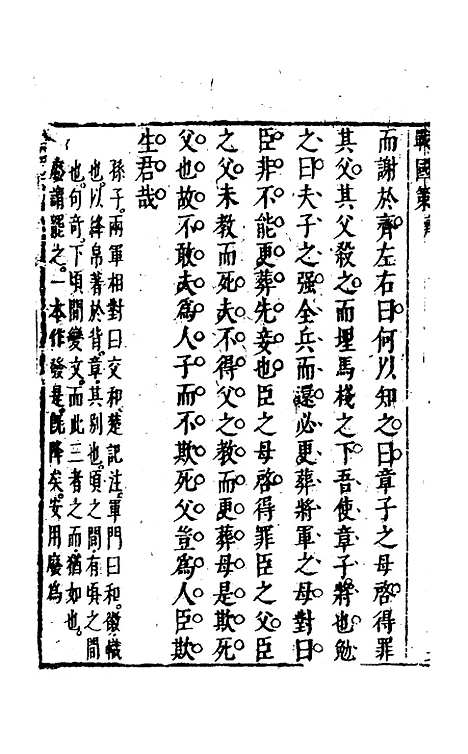 戰國策
而謝於齊左右曰何以知之曰章子之母啓得罪
其父其父殺之而埋馬棧之下吾使章子將也勉
之曰夫子之强全兵而還必更葬將軍之母對曰
臣非不能更葬先妾也臣之母啓得罪臣之父臣
之父未教而死夫不得父之教而更葬母是欺死
父也故不敢夫爲人子而不欺死父豈爲人臣欺
生君哉
孫子兩軍相對曰交和楚記注軍門曰和徽幟
也以絳帛著於背章其別也頃之間有頃之間
也句奇下頃間變文而此三者之而猶如也
廢謂罷之一本作發是既降矣安用廢爲